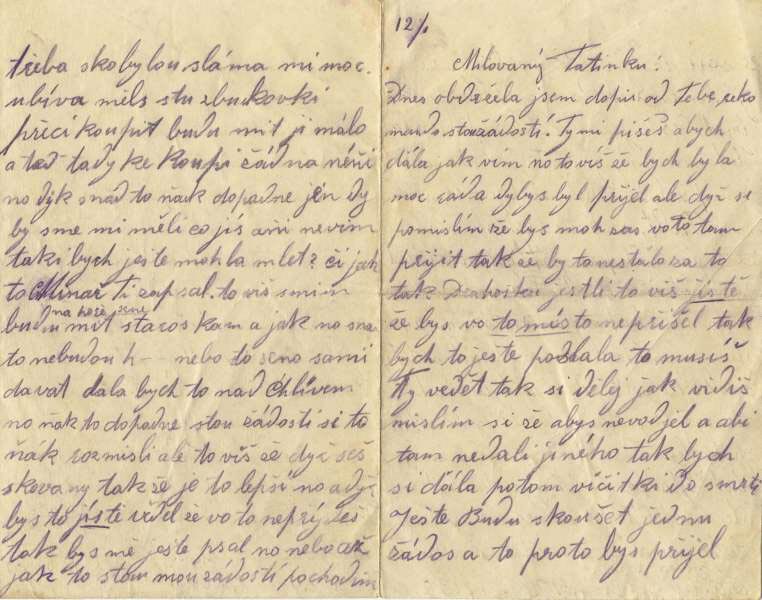 třeba skobylou sláma mi moc.
ubíva měls stu zbukovki
přeci koupit budu mit ji málo
a teď tady ke koupi žádna néni
no dyk snad to ňak dopadne jen dy
by sme mi měli co jís ani nevim
taki bych ješte mohla mlet? či jak
to Minař Ti zapsal. to viš smim
na hoře seno
budu mit staros kam a jak no sna
to nebudou h-- nebo to seno sami
davat dala bych to nad Chlívem
no ňak to dopadne stou žádosti si to
ňák rozmisli ale to viš že dyž seš
skovany tak že je to lepší no adyž
bys to jistě viděl že vo to nepříjdeš
tak bys mě ješte psal no nebo až
jak to stou mou žádostí pochodim
12/.
Milovaný Tatinku!
Dnes obdržela jsem dopis od Tebe reko
mando stou žádostí. Ty mi píšeš abych
dála jak vim no to víš že bych byla
moc ráda dybys byl přijel ale dyž si
pomislím že bys moh zas vo to tam
přijit tak že by to nestálo za to
tak Drahoušku jestli to viš jistě
že bys vo to místo nepřišel tak
bych to ješte poslala to musíš
Ty vedet tak si delej jak vidiš
mislím si že abys nevodjel a abi
tam nedali jiného tak bych
si dála potom víčitki do smrti
Ješte Budu skoušet jednu
žádos a to proto bys přijel